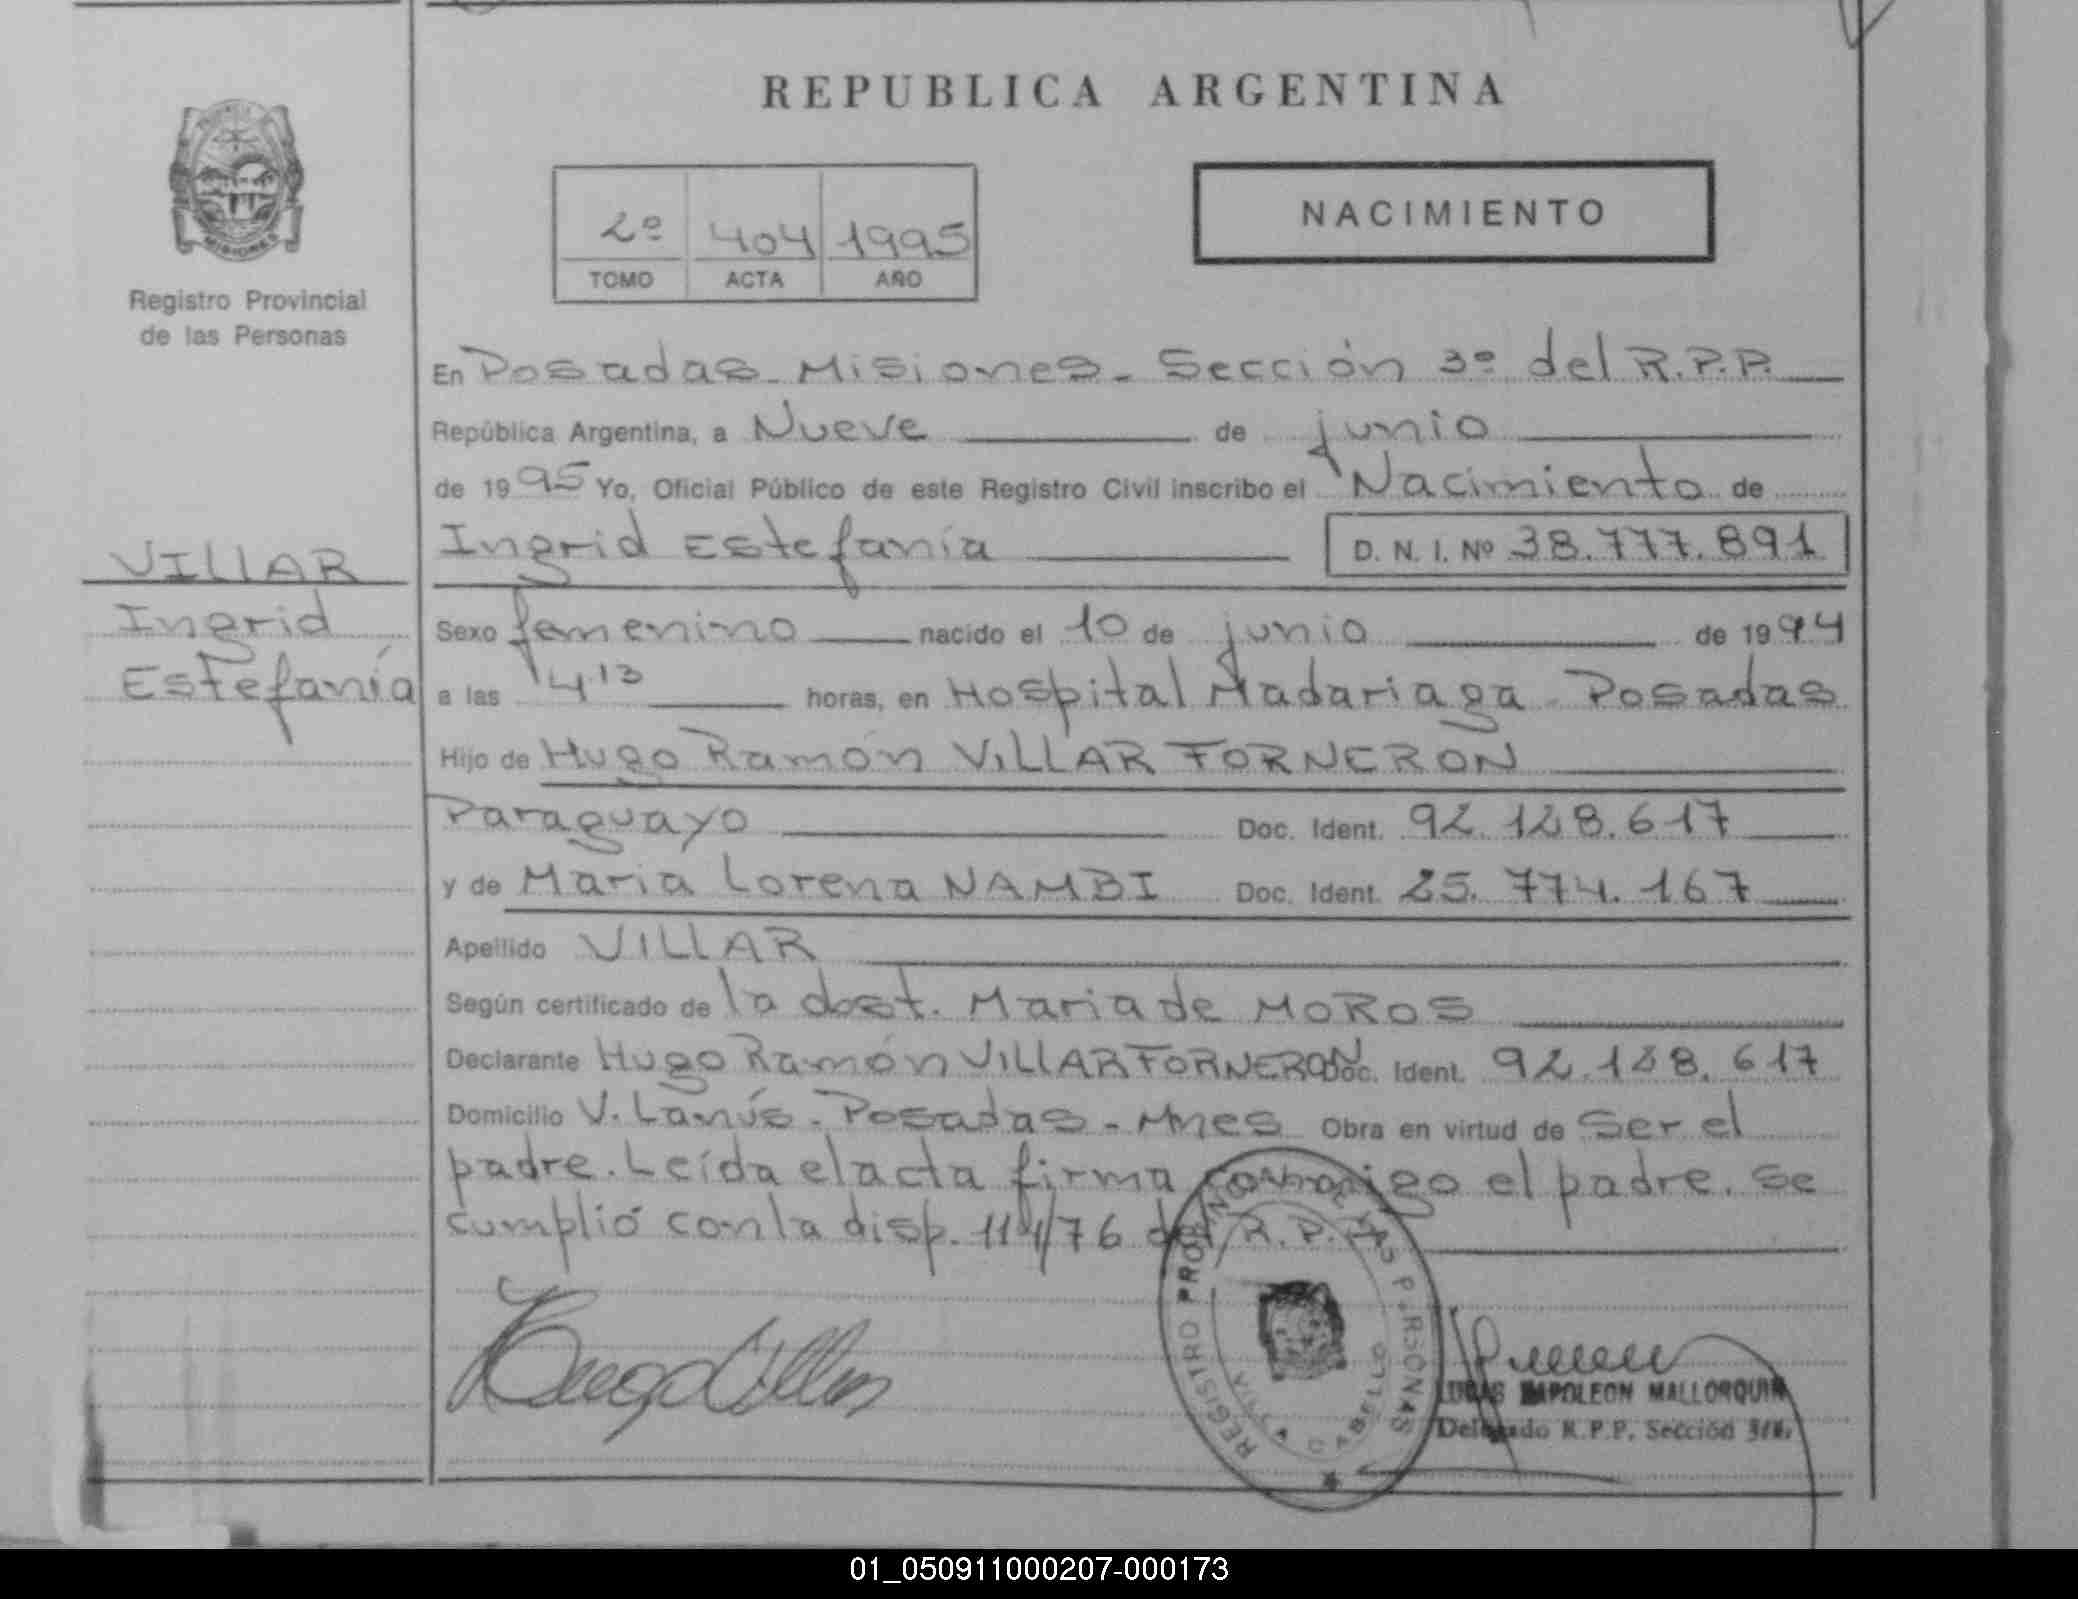 REPUBLICA ARGENTINA
NACIMIENTO
2º 404 1995
TOMO ACTA AÑO
MISIONES
Registro Provincial
de las Personas
En Posadas - Misiones - Sección 3º del R.P.P.
República Argentina, a Nueve de junio
de 1995 Yo, Oficial Público de este Registro Civil inscribo el Nacimiento de
Ingrid Estefanía D. N. I. Nº 38.777.891
VILLAR
Ingrid
Estefanía
Sexo femenino nacido el 10 de junio de 1994
a las 14 13 horas, en Hospital Madariaga - Posadas
Hijo de Hugo Ramón VILLAR FORNERON
Paraguayo Doc. Ident. 92.128.617
y de Maria Lorena NAMBI Doc. Ident. 25.774.167
Apellido VILLAR
Según certificado de la obst. Maria de MOROS
Declarante Hugo Ramón VILLAR FORNERON Doc. Ident. 92.128.617
Domicilio V. Lanús - Posadas - Mnes Obra en virtud de Ser el
padre. Leída el acta firma conmigo el padre. se
cumplió con la disp. 114/76 del R.P.P.
REGISTRO PROVINCIAL DE LAS PERSONAS
CABELLO
LUCAS NAPOLEON MALLORQUIN
Delegado R.P.P. Sección 3ra.
01_050911000207-000173